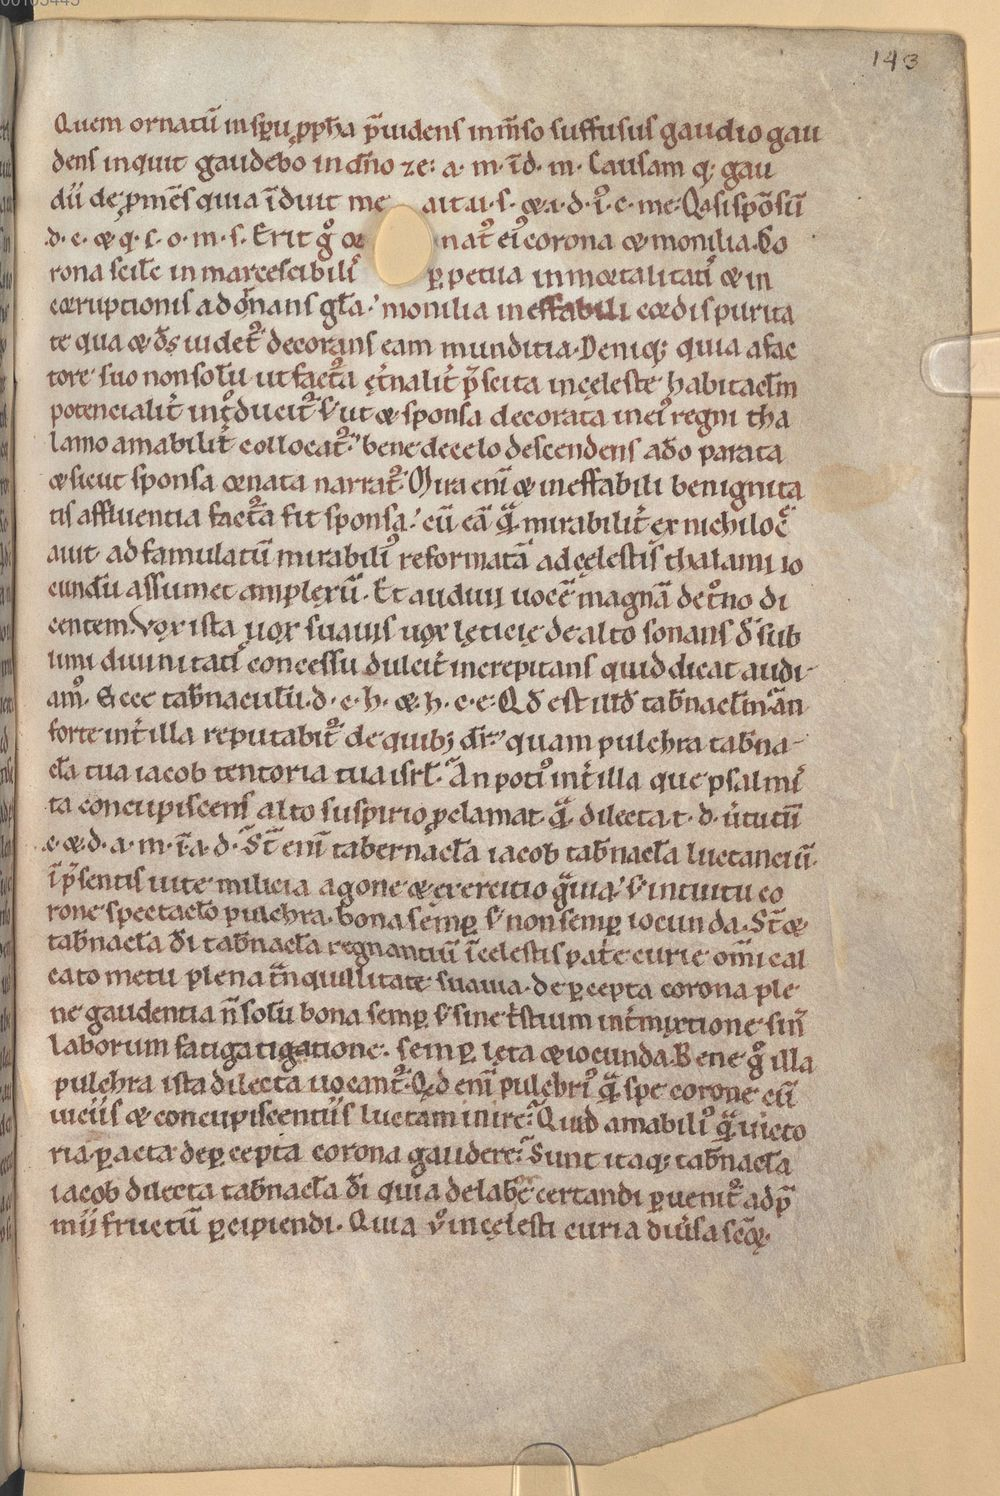 143
Quem ornatū in spū ꝓph̄a p̄uidens inm̄so suffusus gaudio gau
dens inquit gaudebo in dn̄o ⁊e: a. m. īd. m. Causam q; gau
dii de ꝓmēs quia īduit me ait ui. s. & a. d. i. c. me. Q̄si spōsū
d. c. & q. s. o. m. s. Erit gͦ or nat᷒ ei᷒ corona & monilia. Co
rona scilc̄ in marcescibili ꝑpetua inmortalitati᷒ & in
corruptionis adornans gl̄a. monilia ineffabili cordis purita
te qua & d̄s uidet᷒ decorans eam munditia. Deniq; quia a fac
tore suo non solū ut fact̄a ęt̄nalit̄ p̄scita in celeste habitacl̄m
potencialit̄ int͛ducit᷒ s; ut & sponsa decorata in ei᷒ regni tha
lamo amabilit̄ collocat᷒. bene de celo descendens a d̄o parata
& sicut sponsa ornata narrat᷒. Mira enī & ineffabili benignita
tis affluentia fact̄a fit sponsa. cū eā q̄ mirabilit̄ ex nichilo c̄
auit ad famulatū mirabili᷒ reformatā ad cęlestis thalami io
cundū assumet amplexū. Et audiui uocē magnā de t͛no di
centem. Vox ista uox suauis uox lęticię de alto sonans d̄ sub
limi diuinitati᷒ concessu dulcit̄ increpitans quid dicat audi-
am᷒. Ecce tab̄naculū. d. c. h. & h. c. e. Qd̄ est illd̄ tab̄nacl̄m. ān
forte int̄ illa reputabit᷒ de quib; dr̄. quam pulchra tab̄na-
cl̄a tua iacob tentoria tua isrl̄. An poti᷒ int̄ illa que psalmi
ta concupiscens alto suspirio ꝓclamat. q̄ dilecta t. d. u̓tutū
c. & d. a. m. i. a. d. S̄t enī tabernacl̄a iacob tab̄nacl̄a luctanciū.
īp̄sentis uite milicia agone & exercitio g̃uia. s; intuitu co
rone spectacl̄o pulchra. bona semꝑ s; non semꝑ iocunda. S̄t &
tab̄nacl̄a d̄i tab̄nacl̄a regnantiū ī celestis pat̄e curie om̄i cal
cato metu plena t̄nquillitate suauia. de ꝑcepta corona ple
ne gaudentia n̄ solū bona semꝑ s; sine t̓stium int̓mixtione sin̄
laborum fatigatigatione. semꝑ lęta & iocunda. Bene gͦ illa
pulchra ista dilecta uocant᷒. Qd enī pulchri᷒ q̄ spe corone cū
uiciis & concupiscentiis luctam inire. Quid amabili᷒ q̄ uicto
ria ꝑacta de ꝑcepta corona gaudere. Sunt itaq; tab̄nacl̄a
iacob dilecta tab̄nacl̄a d̄i quia de labo᷒e certandi ꝑuenit᷒ ad p̄
mii fructū ꝑcipiendi. Quia u̓ in cęlesti curia diu̓sa